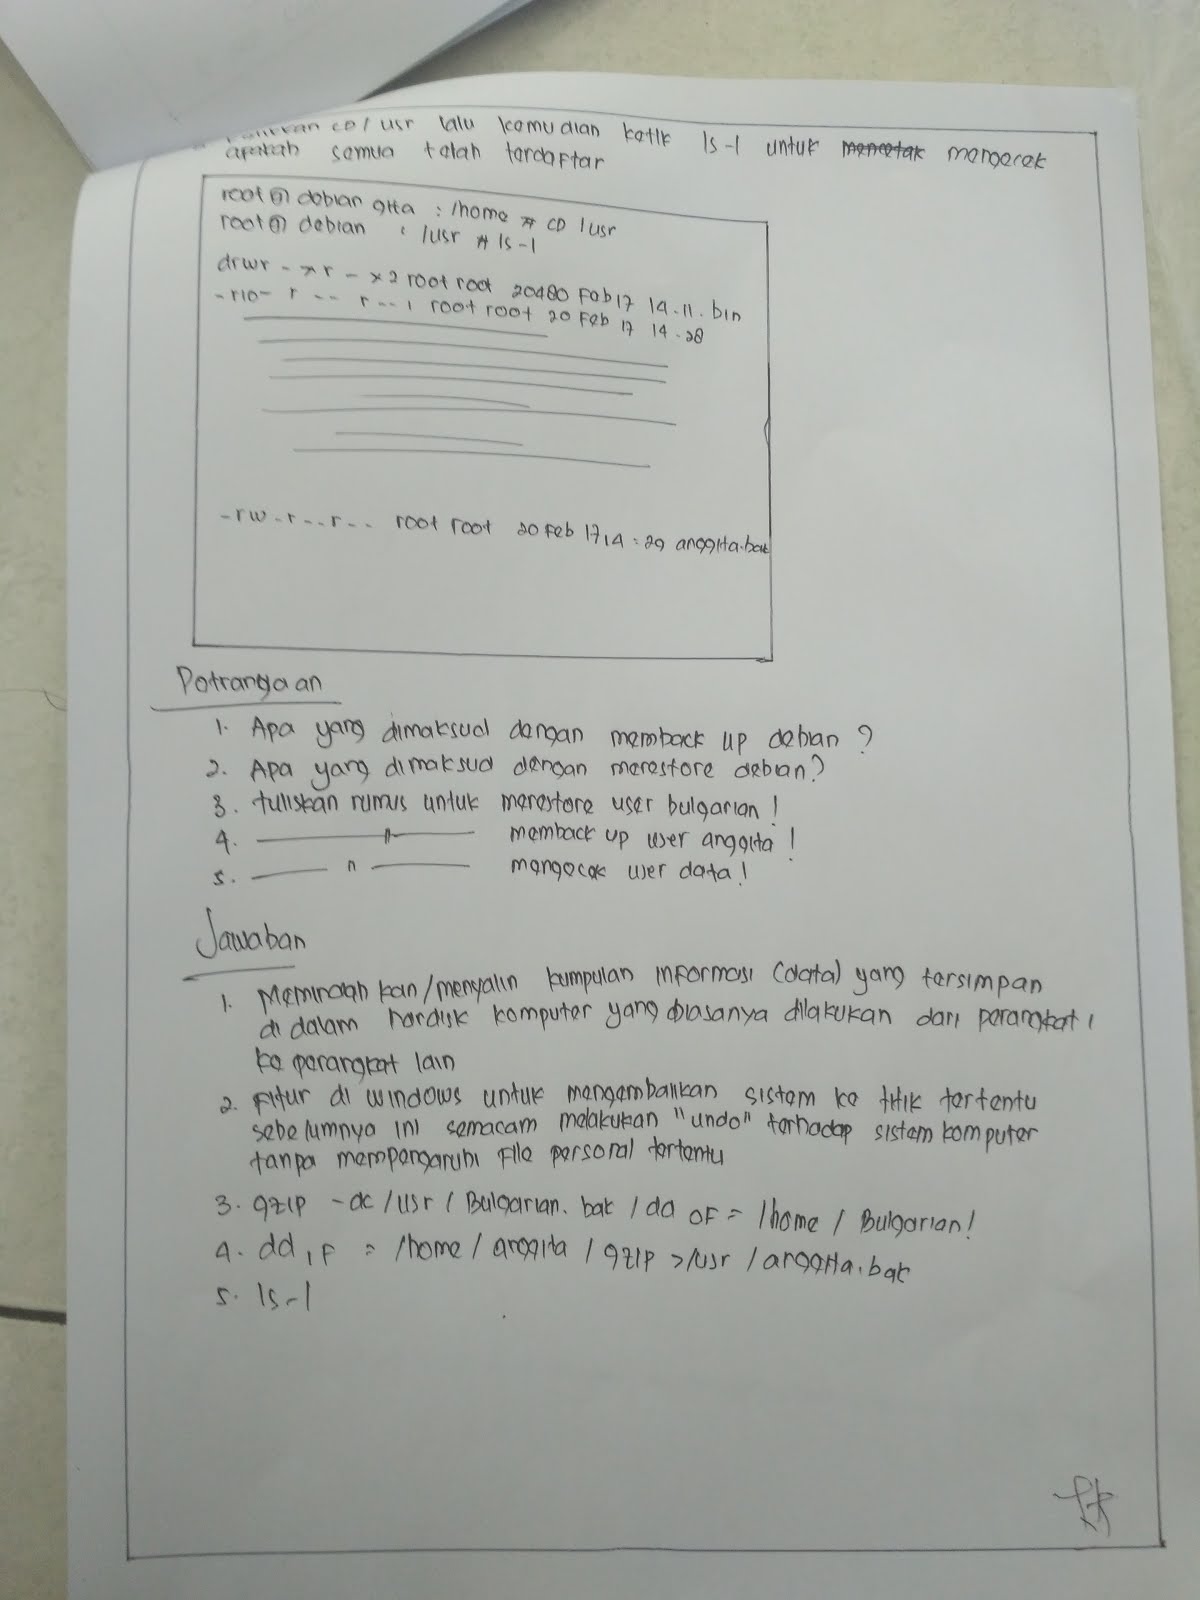 cd / usr lalu kemudian ketik ls-l untuk mencetak mengecek
apakah semua telah terdaftar
root @ debian gita : /home # cd /usr
root @ debian : /usr # ls-l
drwr - xr - x 2 root root 20480 Feb 17 14.11. bin
-rw- r -- r -- 1 root root 20 Feb 17 14.28
-rw-r--r-- root root 20 Feb 17 14:29 anggita.bak
Petrangaan
1. Apa yang dimaksud dengan memback up debian ?
2. Apa yang dimaksud dengan merestore debian?
3. tuliskan rumus untuk merestore user bulgarian !
4. —— " —— memback up user anggita !
5. —— " —— mengecek user data!
Jawaban
1. Memindah kan/menyalin kumpulan informasi (data) yang tersimpan
di dalam hardisk komputer yang biasanya dilakukan dari perangkat 1
ke perangkat lain
2. Fitur di windows untuk mengembalikan sistem ke titik tertentu
sebelumnya ini semacam melakukan "undo" terhadap sistem komputer
tanpa mempengaruhi file personal tertentu
3. gzip -dc /usr / Bulgarian. bak / dd OF = /home / Bulgarian!
4. dd, IF = /home / anggita / gzip >/usr / anggita.bak
5. ls-l